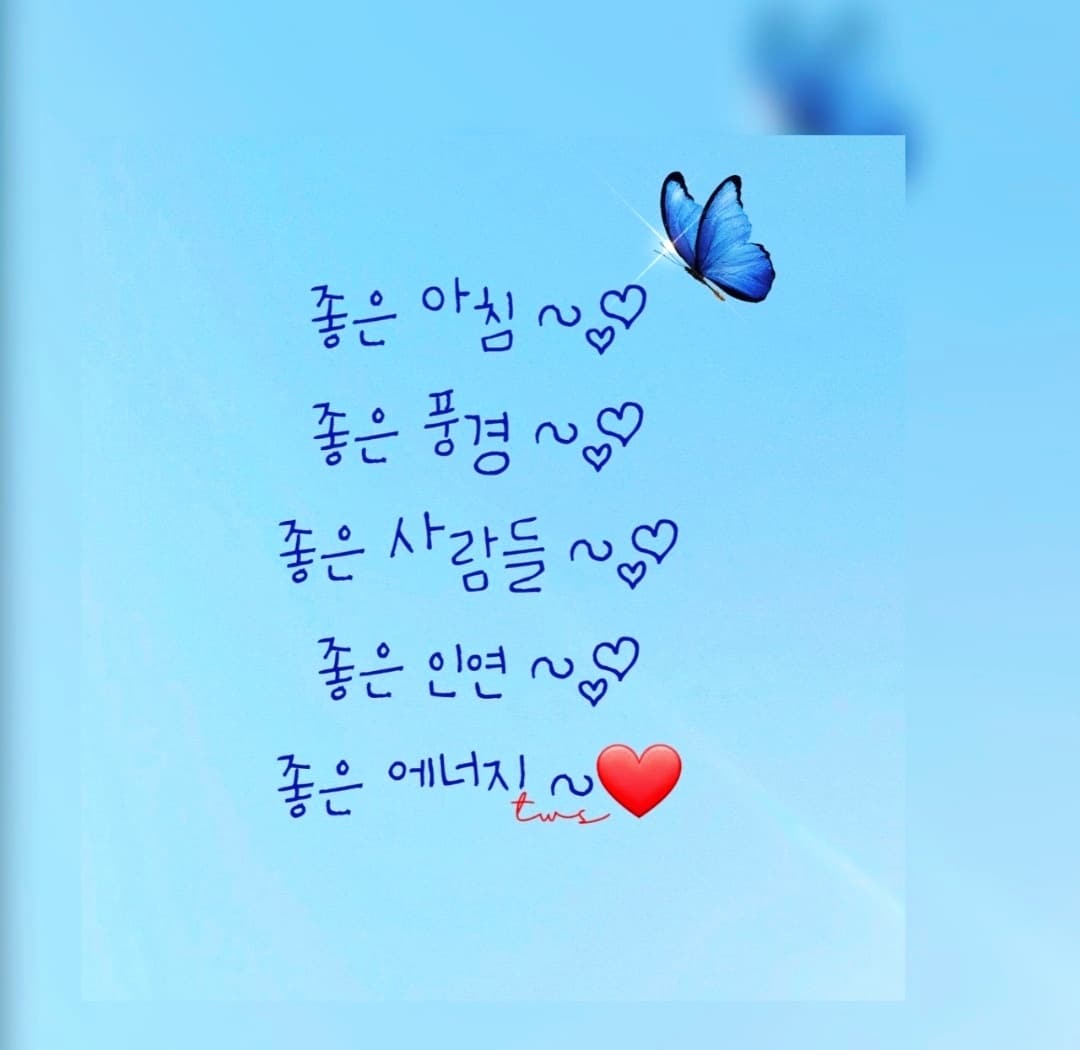 좋은 아침 ~♡♡
좋은 풍경 ~♡♡
좋은 사람들 ~♡♡
좋은 인연 ~♡♡
좋은 에너지 ~❤️
tws